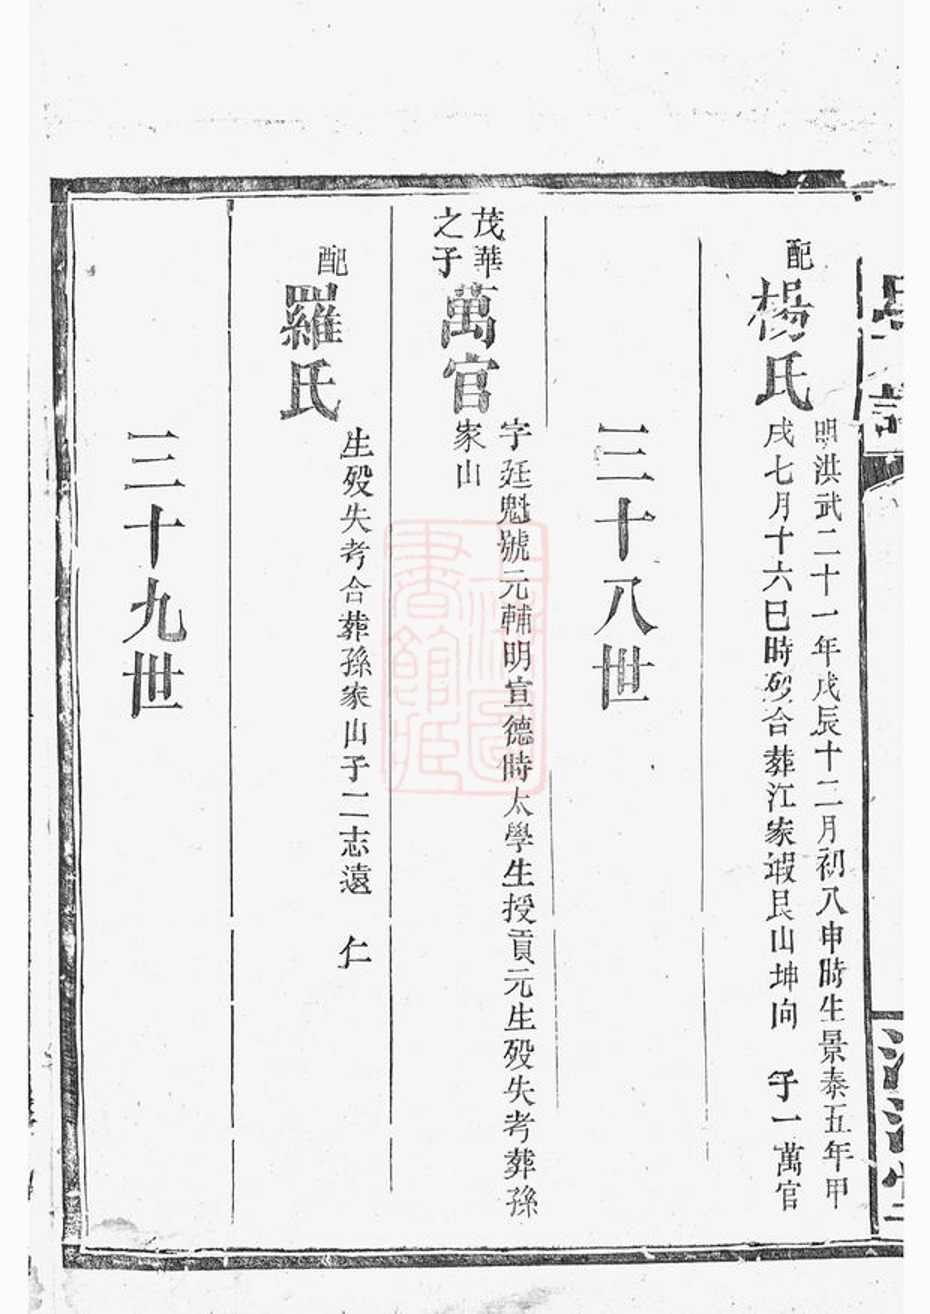 配
楊氏
明洪武二十一年戊辰十二月初八申時生景泰五年甲
戌七月十六巳時歿合葬江家嘏艮山坤向 子一萬官
三十八世
茂華
之子
萬官
字廷魁號元輔明宣德時太學生授貢元生歿失考葬孫
家山
配
羅氏
生歿失考合葬孫家山子二志遠 仁
三十九世